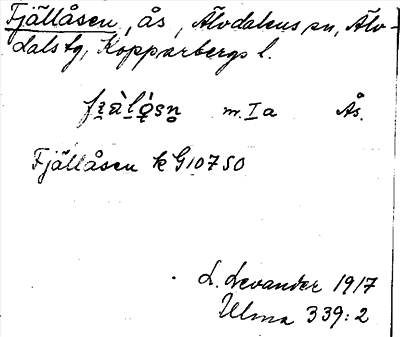 Fjällåsen, ås, Älvdalens sn, Älv-
dals tg, Kopparbergs l.
m. I a Ås.
Fjällåsen k G10750
L. Levander 1917
Ulma 339:2